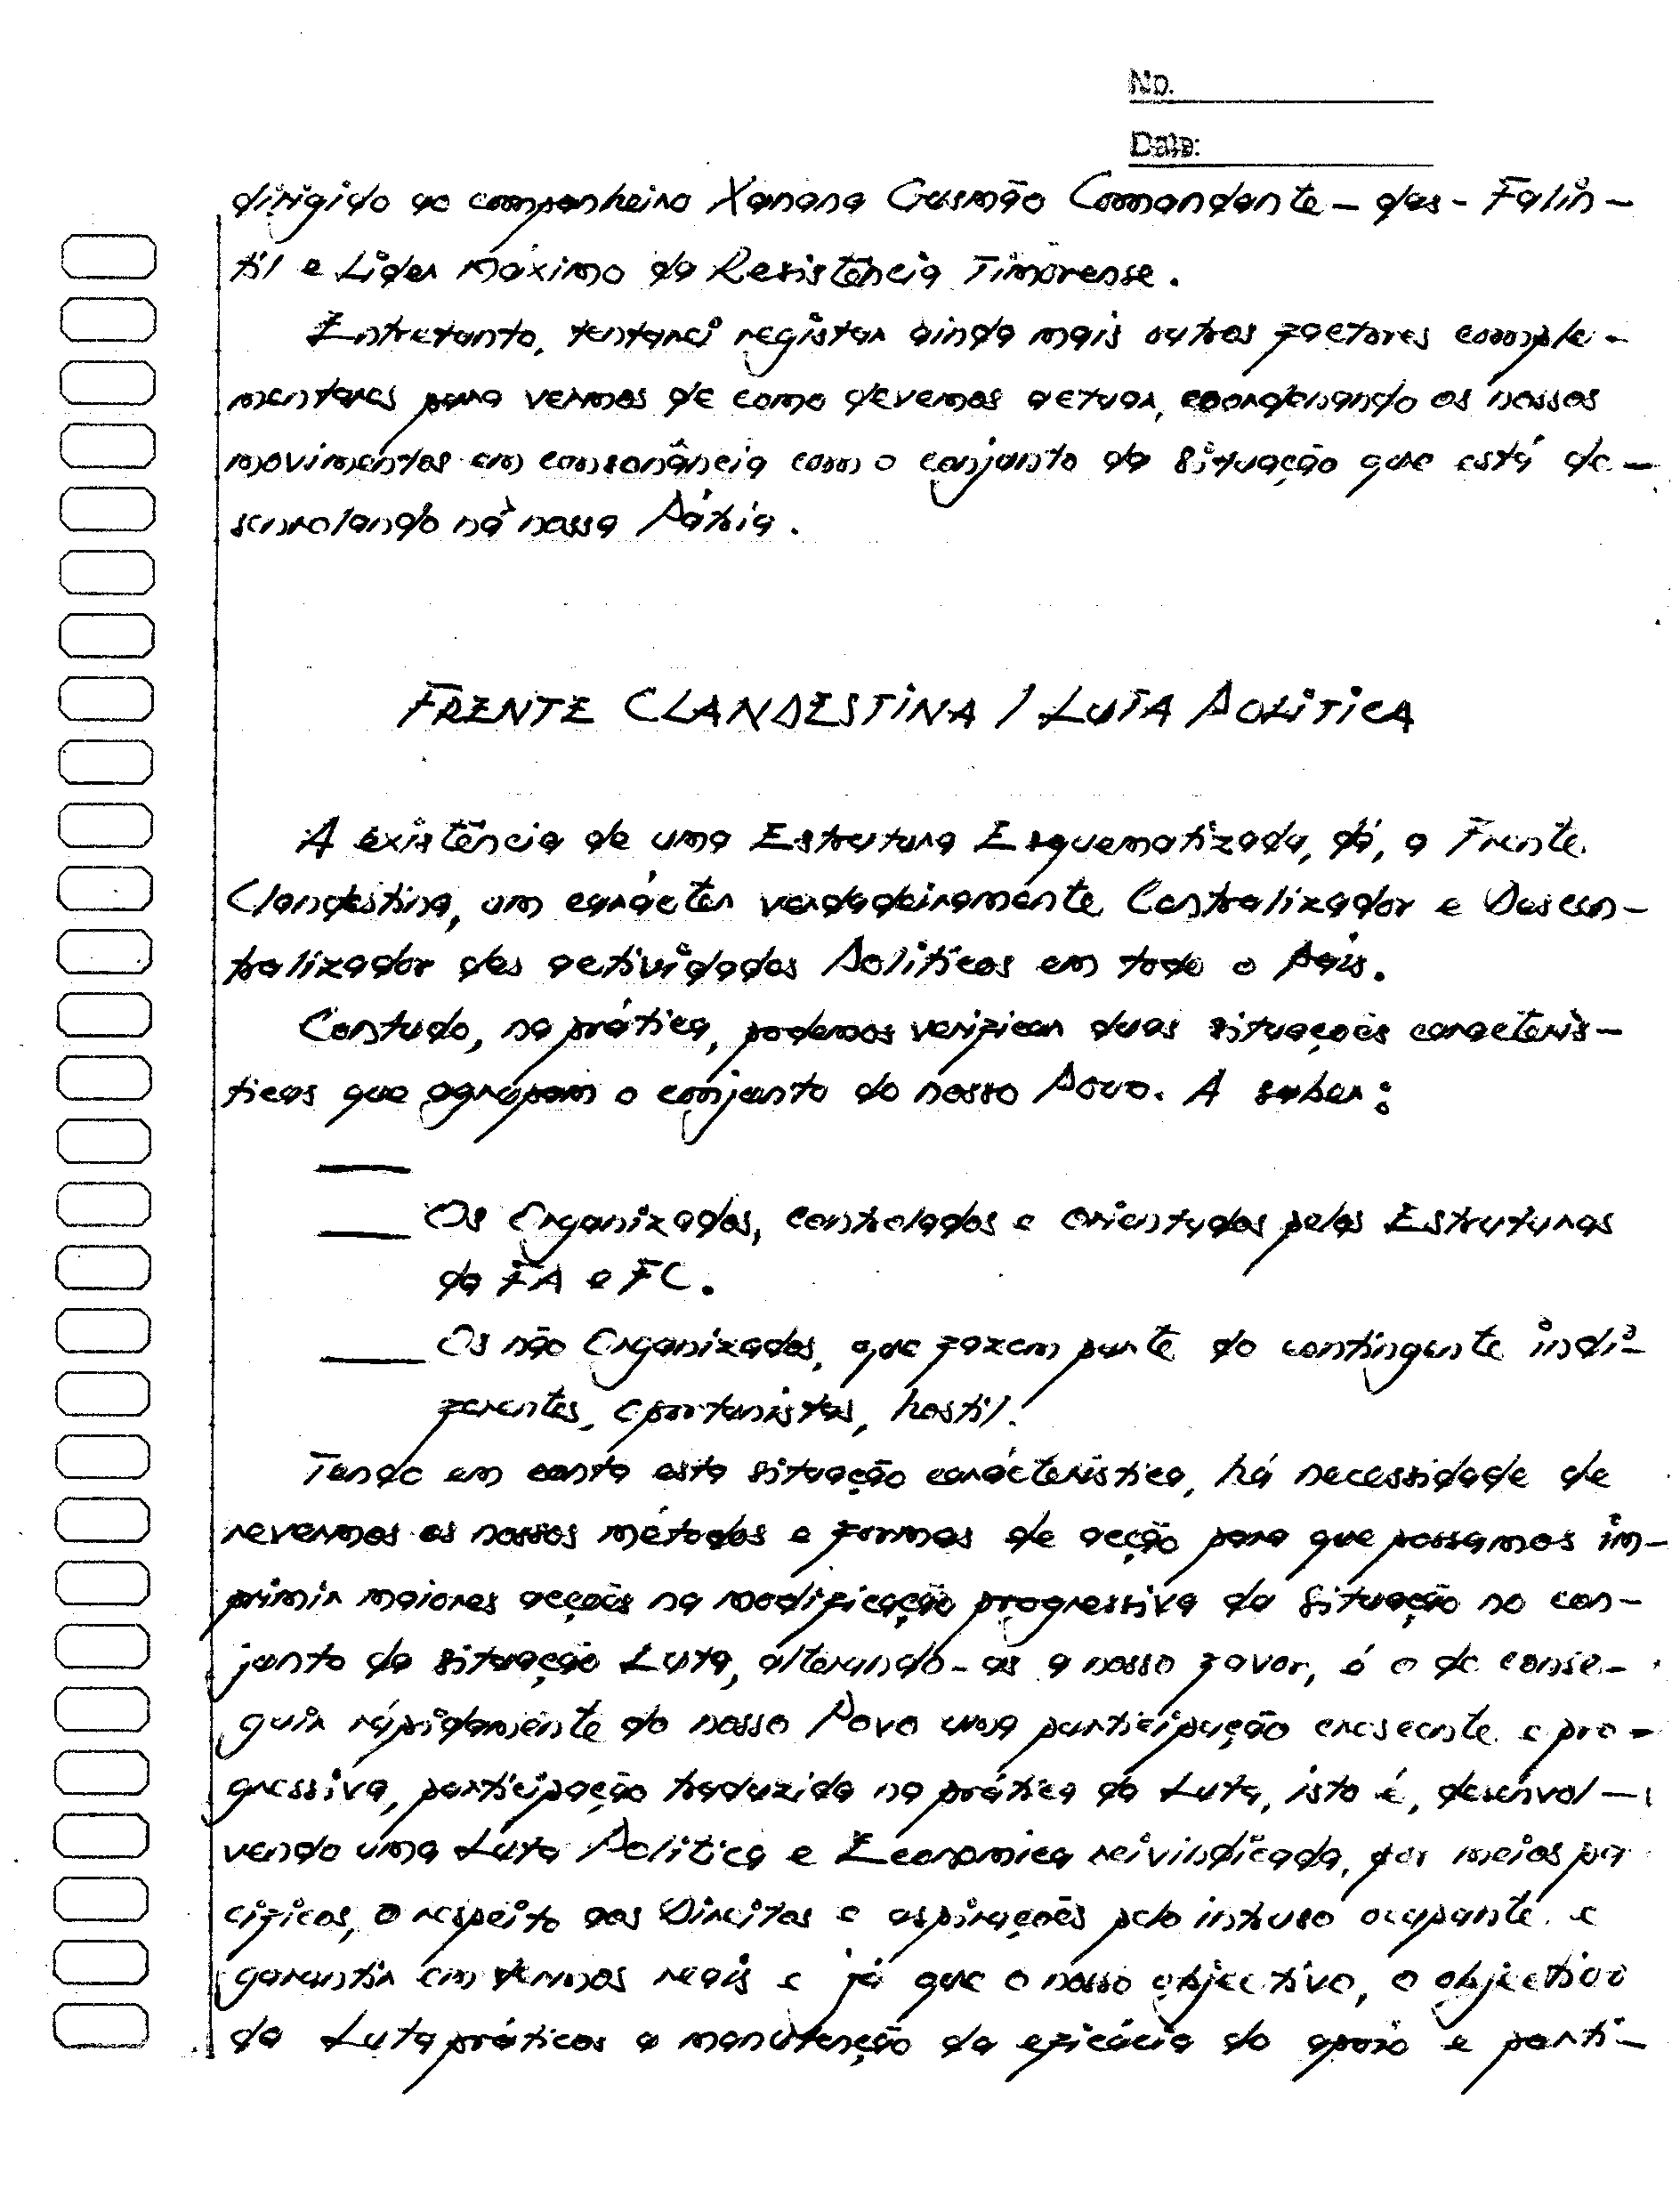 No.
Date:
dirigido ao companheiro Xanana Gusmão Comandante-das-Falin-
til e Lider Máximo da Resistência Timorense.
Entretanto, tentarei registar ainda mais outros factores comple-
mentares para vermos de como devemos actuar, coordenando os nossos
movimentos em consonância com o conjunto da situação que está de-
senrolando na nossa Pátria.
FRENTE CLANDESTINA / LUTA POLITICA
A existência de uma Estrutura Esquematizada, dá, a Frente
Clandestina, um carácter verdadeiramente Centralizador e Descen-
tralizador das actividades Politicas em todo o País.
Contudo, na prática, podemos verificar duas situações caracterís-
ticas que agrupam o conjunto do nosso Povo. A saber:
— Os Organizados, controlados e orientados pelas Estruturas
da FA e FC.
— Os não Organizados, que fazem parte do contingente indi-
ferentes, oportunistas, hostil.
Tendo em conta esta situação carácterística, há necessidade de
revermos os nossos métodos e formas de acção para que possamos im-
primir maiores acções na modificação progressiva da situação no con-
junto da situação Luta, alterando-as a nosso favor, é o de conse-
guir rápidamente do nosso Povo uma participação crescente e pro-
gressiva, participação traduzida na prática da Luta, isto é, desenvol-
vendo uma Luta Politica e Economica reivindicada, por meios pa
cificos, o respeito aos Direitos e aspirações pelo intruso ocupante e
garantir em termos reais e já que o nosso objectivo, o objectivo
da Luta práticos a manutenção da eficácia do apoio e parti-